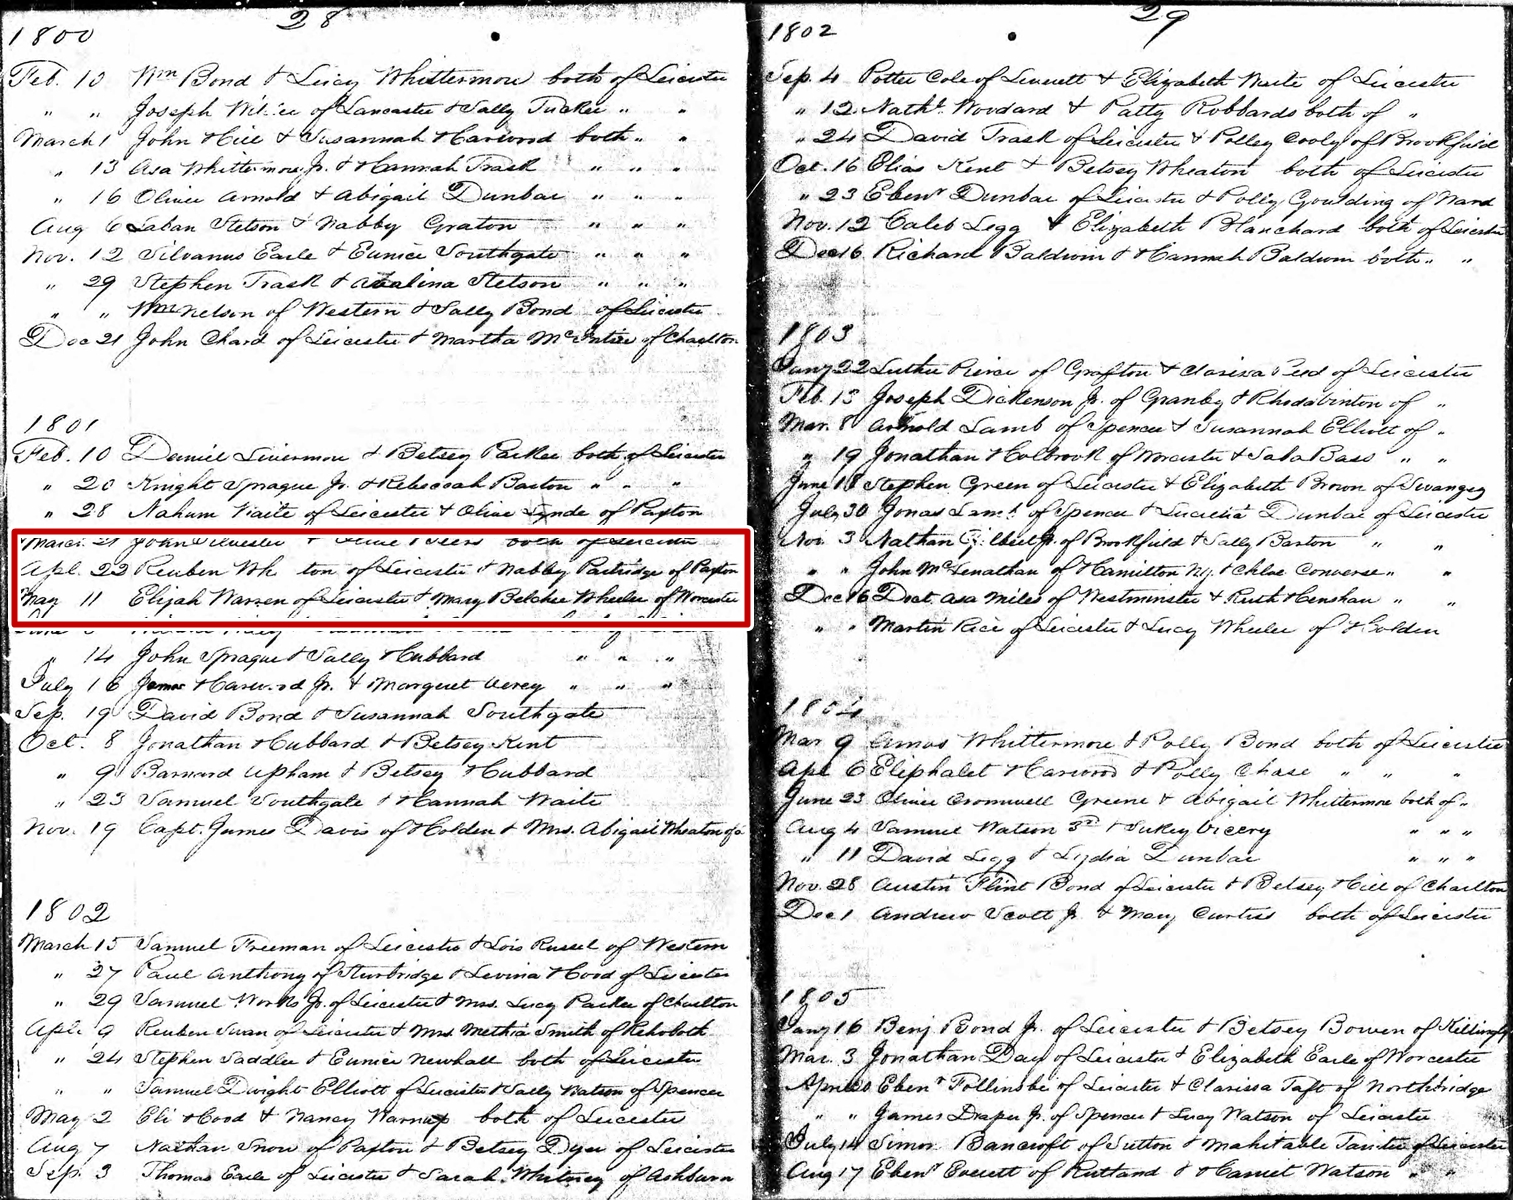 28
1800
Feb. 10 Wm Bond & Lucy Whittermore both of Leicester
" " Joseph of Lancaster & Sally Tucker " "
March 1 John Hill & Susannah Harwood both " "
" 13 Asa Whittermore Jr. & Hannah Trask " " "
" 16 Oliver Arnold & Abigail Dunbar " " "
Aug 6 Laban Stetson & Nabby Graton " " "
Nov. 12 Silvanus Earle & Eunice Southgate " " "
" 29 Stephen Trask & Stetson " " "
" " Wm Nelson of Western & Sally Bond of Leicester
Dec 21 John Chard of Leicester & Martha McIntire of Charlton
1801
Feb. 10 Daniel Livermore & Betsey Parker both of Leicester
" 20 Knight Sprague Jr. & Rebeccah Barton " " "
" 28 Nahum Waite of Leicester & Olive Lynde of Paxton
March 21 John Silvester & Olive both of Leicester
Apl. 22 Reuben Wh ton of Leicester & Nabby Partridge of Paxton
May 11 Elijah Warren of Leicester & Mary Belcher Wheeler of Worcester
" 14 John Sprague & Sally Hubbard " " "
July 16 James Harwood Jr. & Margaret " " "
Sep. 19 David Bond & Susannah Southgate
Oct. 8 Jonathan Hubbard & Betsey Kent
" 9 Barnard Upham & Betsey Hubbard
" 23 Samuel Southgate & Hannah Waite
Nov. 19 Capt. James Davis of Holden & Mrs. Abigail Wheaton of
1802
March 15 Samuel Freeman of Leicester & Lois Russel of Western
" 27 Paul Anthony of Sturbridge & Levina Hood of Leicester
" 29 Samuel Works Jr. of Leicester & Mrs. Lucy Parker of Charlton
Apl. 9 Reuben Swan of Leicester & Mrs Smith of Rehoboth
" 24 Stephen Saddler & Eunice Newhall both of Leicester
" " Samuel Dwight Elliott of Leicester & Sally Watson of Spencer
May 2 Eli Hood & Nancy both of Leicester
Aug 7 Nathan Snow of Paxton & Betsey Dyer of Leicester
Sep. 3 Thomas Earle of Leicester & Sarah Whitney of Ashburn
29
1802
Sep. 4 Potter Cole of & Elizabeth of Leicester
" 12 Nathl. Woodard & Patty Robbards both of "
" 24 David Trask of Leicester & Polley Cooly of Brookfield
Oct. 16 Elias Kent & Betsey Wheaton both of Leicester
" 23 Ebenr Dunbar of Leicester & Polly Goulding of Ward
Nov. 12 Caleb Legg & Elizabeth Blanchard both of Leicester
Dec 16 Richard Baldwin & Hannah Baldwin both " "
1803
Jany 22 Luther Peirce of Grafton & Clarissa of Leicester
Feb. 13 Joseph Dickenson Jr. of Granby & Rhoda Vinton of "
Mar. 8 Arnold Lamb of Spencer & Susannah Elliott of "
" 19 Jonathan Holbrook of Worcester & Bass " "
June 18 Stephen Green of Leicester & Elizabeth Brown of Swanzey
July 30 Jonas Lamb of Spencer & Lucretia Dunbar of Leicester
Nov. 3 Nathan Gilbert Jr. of Brookfield & Sally Barton " "
" " John McLenathan of Hamilton NY. & Chloe Converse " "
Dec 16 Doct. Asa Miles of Westminster & Ruth Henshaw " "
" " Martin Rice of Leicester & Lucy Wheeler of Holden
1804
Mar 9 Amos Whittermore & Polly Bond both of Leicester
Apl 6 Eliphalet Harwood & Polly Chase " " "
June 23 Oliver Cromwell Greene & Abigail Whittermore both of "
Aug 4 Samuel Watson 3rd & Sukey Vicery " " "
" 11 David Legg & Lydia Dunbar " " "
Nov. 28 Austin Flint Bond of Leicester & Betsey Hill of Charlton
Dec 1 Andrew Scott Jr. & Mary Curtiss both of Leicester
1805
Jany 16 Benj. Bond Jr. of Leicester & Betsey Bowen of Killingly
Mar. 3 Jonathan Day of Leicester & Elizabeth Earle of Worcester
April 20 Ebenr Follinsbe of Leicester & Clarissa Taft of Northbridge
" " James Draper Jr. of Spencer & Lucy Watson of Leicester
July 14 Simon Bancroft of Sutton & Mahitable of Leicester
Aug 17 Ebenr Everett of Rutland & Harriet Watson " "